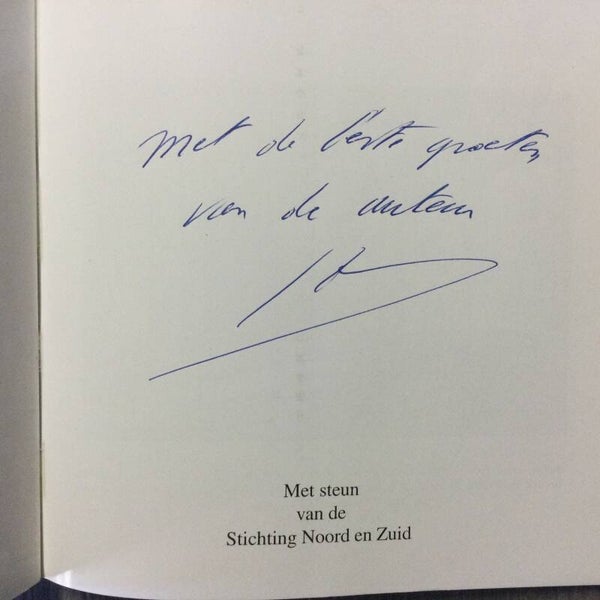 Met de beste groeten
van de auteur
Met steun
van de
Stichting Noord en Zuid